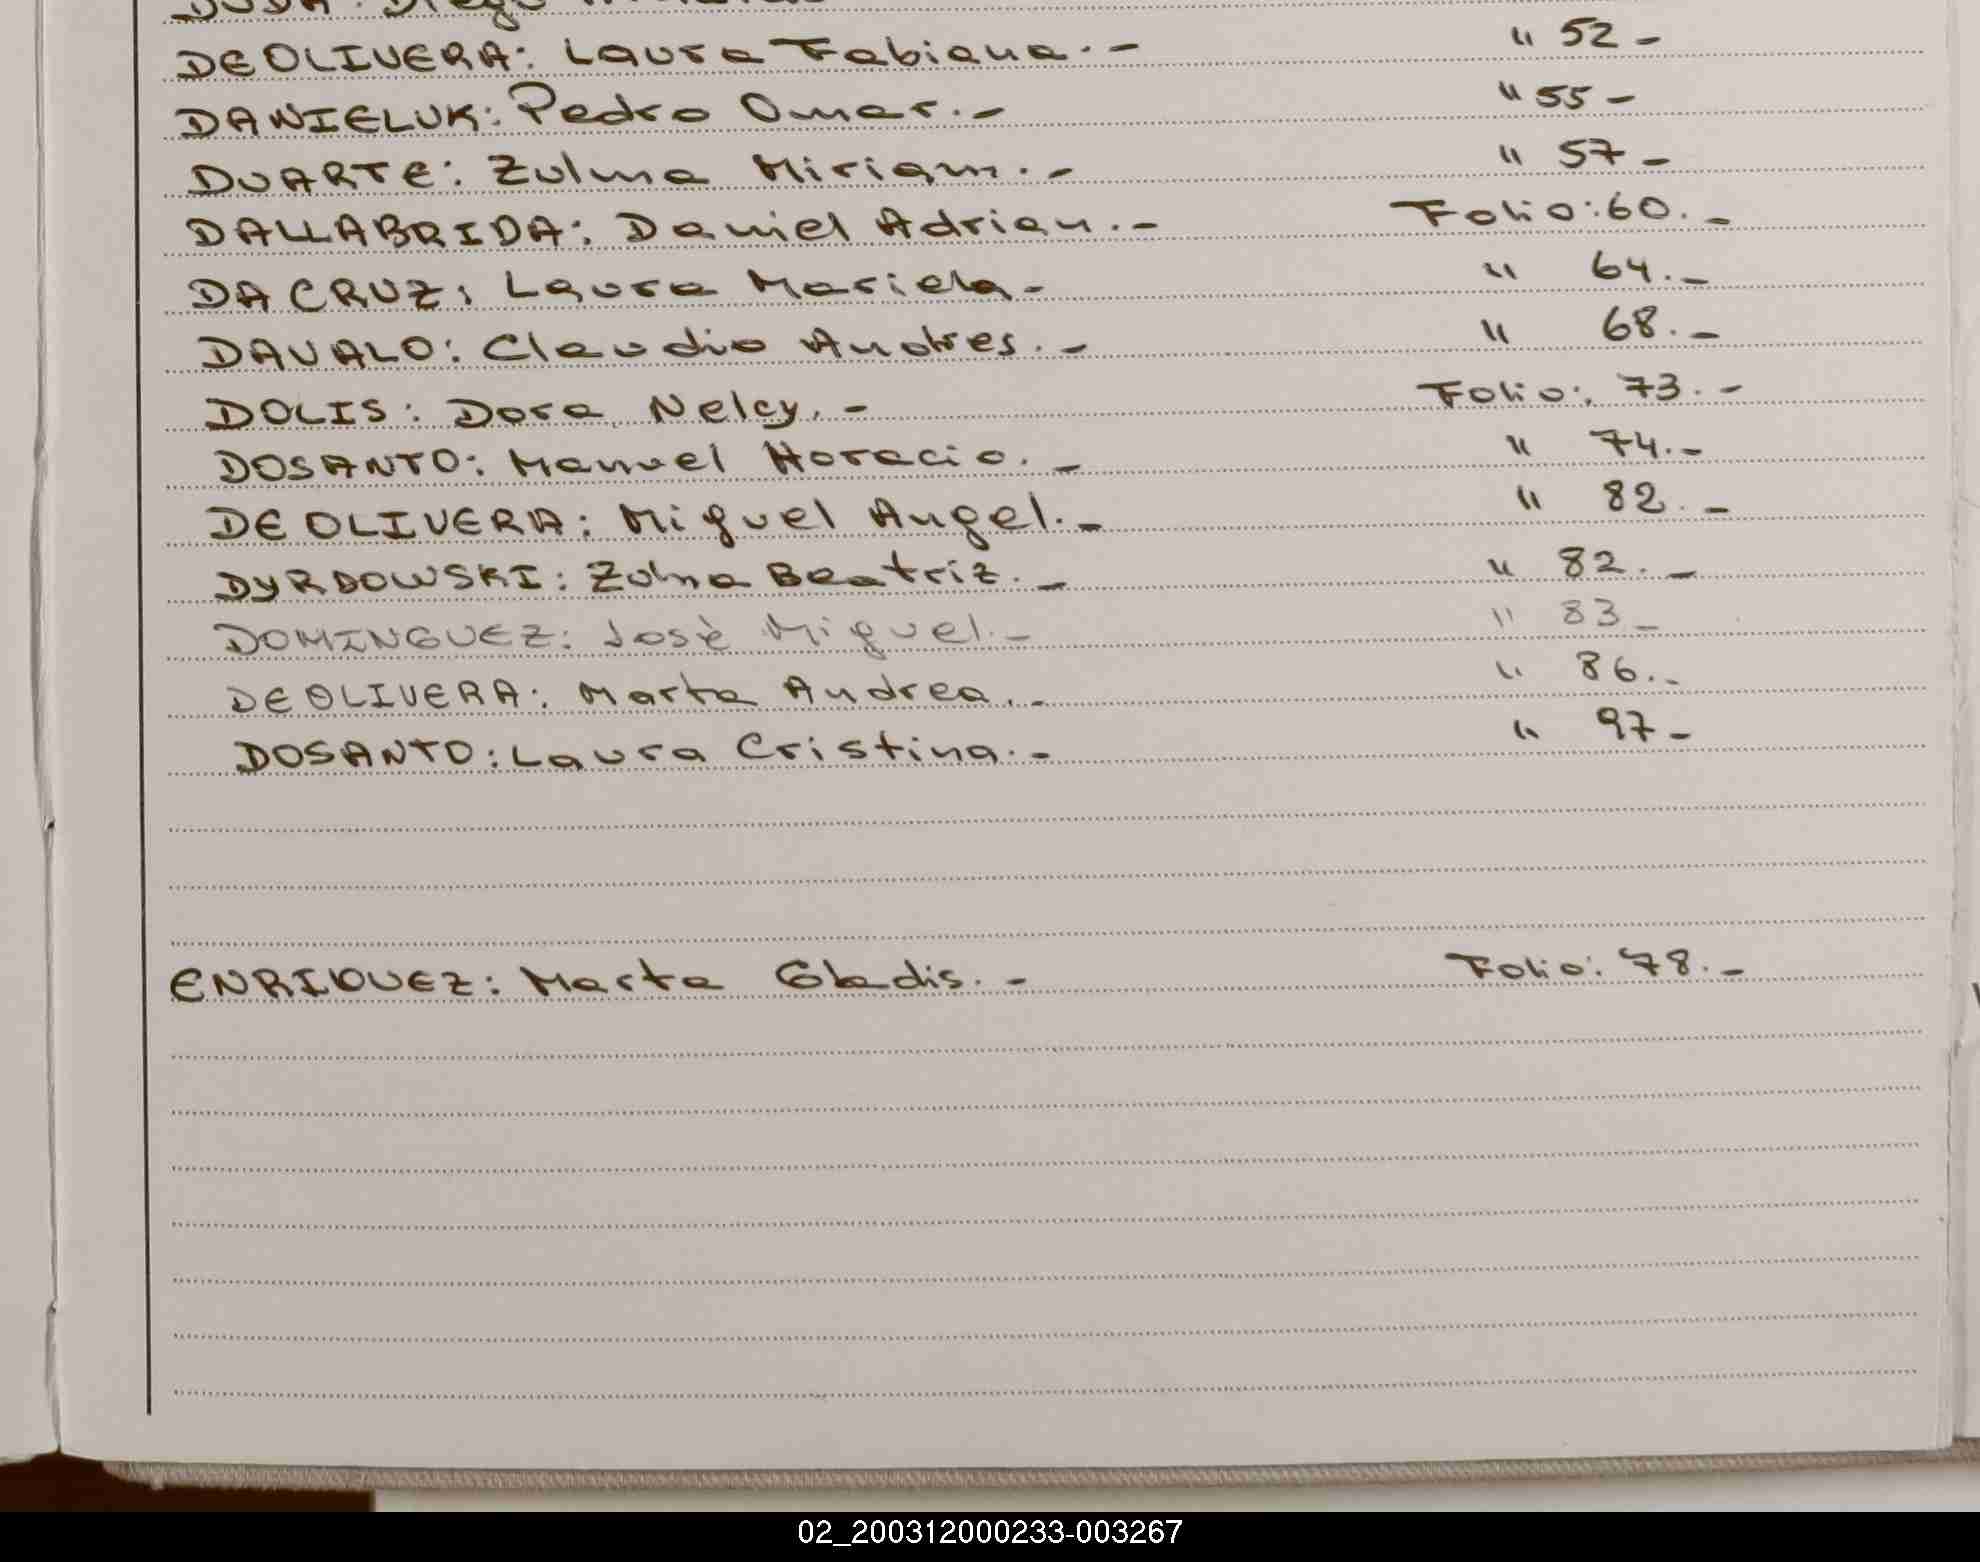 DEOLIVERA: Laura Fabiana.- " 52-
DANIELUK: Pedro Omar.- " 55-
DUARTE: Zulma Miriam.- " 57-
DALLABRIDA: Daniel Adrian.- Folio:60.-
DA CRUZ: Laura Mariela- " 64.-
DAVALO: Claudio Andres.- " 68.-
DOLIS: Dora Nelcy.- Folio: 73.-
DOSANTO: Manuel Horacio.- " 74.-
DE OLIVERA: Miguel Angel.- " 82.-
DYRDOWSKI: Zulma Beatriz.- " 82.-
DOMINGUEZ: Josè Miguel.- " 83-
DE OLIVERA: Marta Andrea.- " 86.-
DOSANTO: Laura Cristina.- " 97-
ENRIQUEZ: Marta Gladis.- Folio: 78.-
02_200312000233-003267